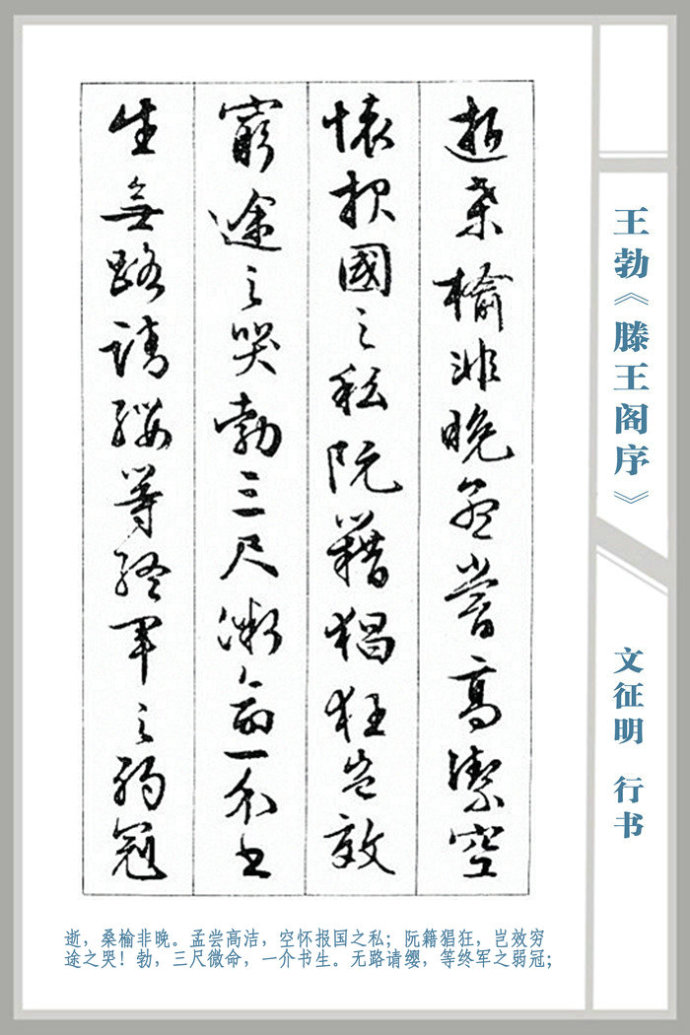 逝桑榆非晚孟嘗高潔空
懷報國之私阮籍猖狂豈效
窮途之哭勃三尺微命一介書
生無路請纓等終軍之弱冠
王勃《滕王阁序》
文征明 行书
逝，桑榆非晚。孟尝高洁，空怀报国之私；阮籍猖狂，岂效穷
途之哭！勃，三尺微命，一介书生。无路请缨，等终军之弱冠；